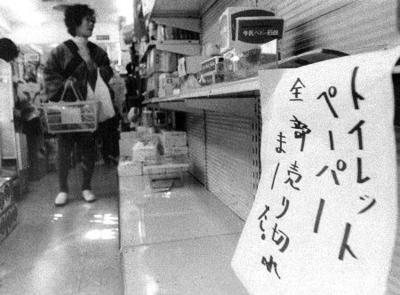 トイレット
ペーパー
全部売り切れ
ました